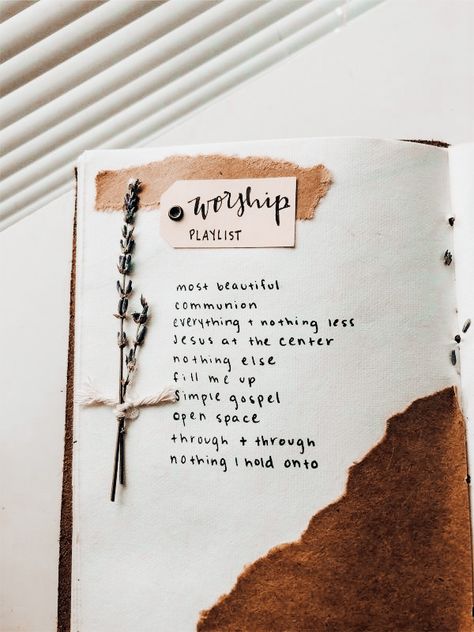 worship
PLAYLIST
most beautiful
communion
everything + nothing less
Jesus at the center
nothing else
fill me up
Simple gospel
open space
through + through
nothing I hold onto